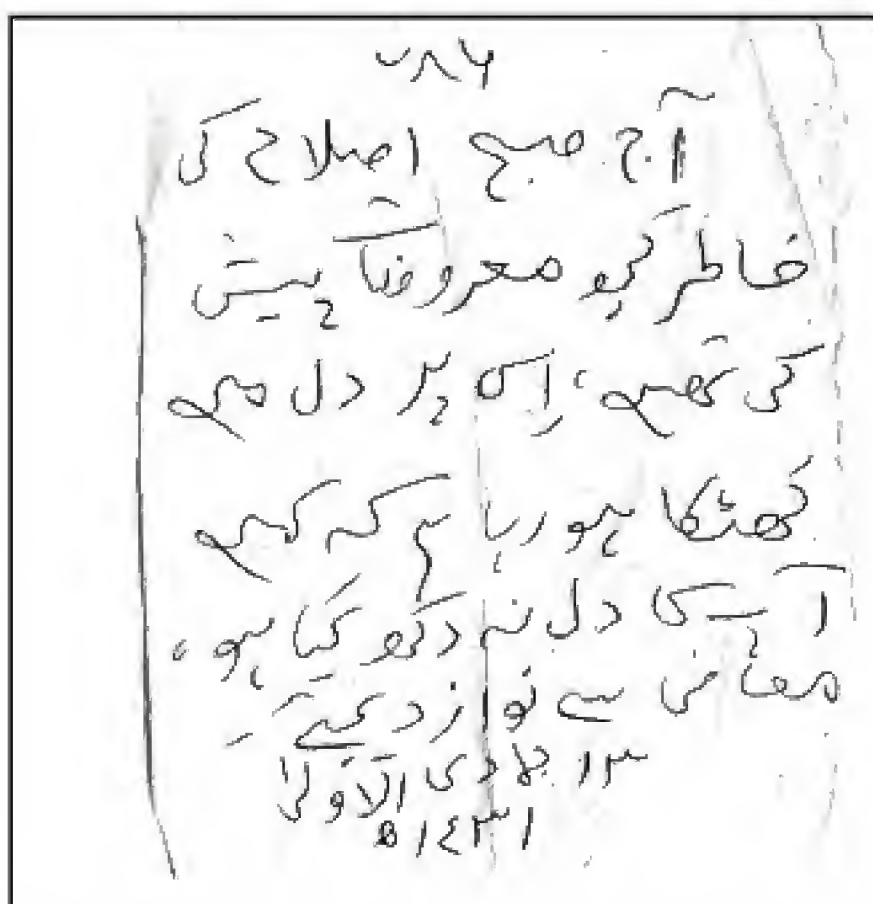 ۷۸۶
آج صبح اصلاح کی
خاطر کچھ معروضات پیش
کی تھیں، اِس پر دل میں
کھٹکا ہو رہا ہے کہ کہیں
آپ کا دل نہ دکھ گیا ہو،
معافی سے نواز دیجئے
۱۳ جمادی الاولیٰ
۱٤۳۱ھ